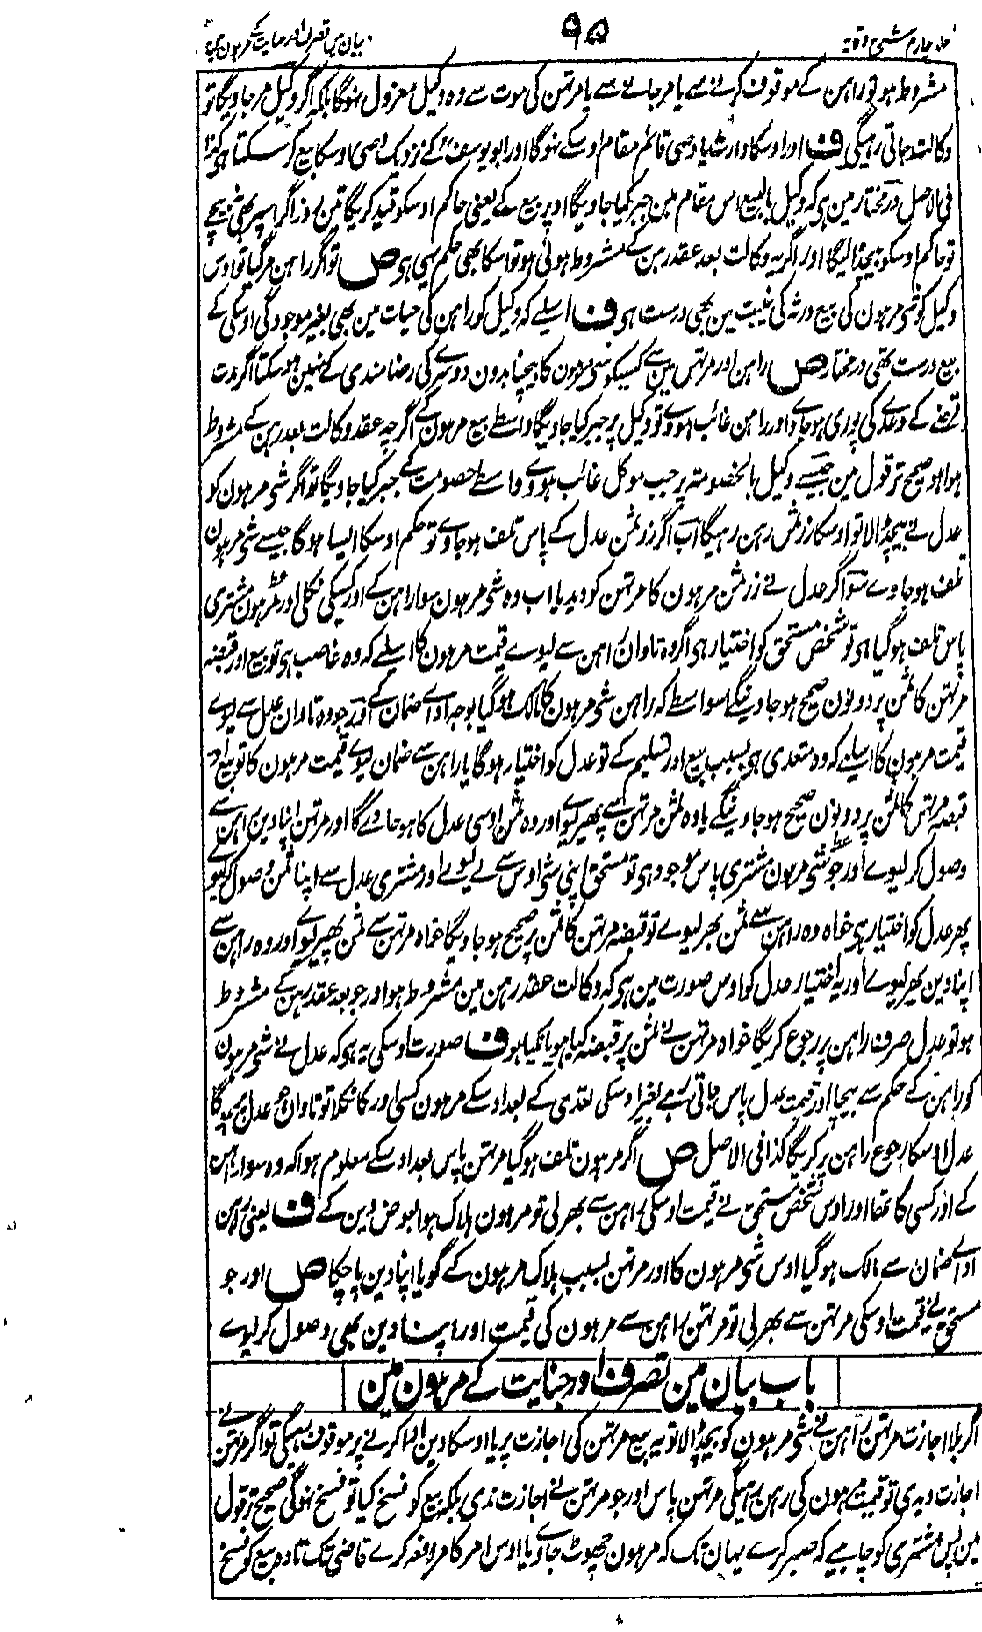 ۹۵
بیان میں تصرف اور جنایت کے مرہون میں
مشروط ہو تو راہن کے موقوف کرنے سے یا مر جانے سے یا مرتہن کی موت سے وہ وکیل معزول نہوگا بلکہ اگر وکیل مر جاویگا تو
وکالت جاتی رہیگی ف اور اوسکا وارث یا وصی قائم مقام اوسکے نہوگا اور ابو یوسف کے نزدیک وصی اوسکا بیع کر سکتا ہی کذا
فی الاصل درمختار مین ہی کہ وکیل بالبیع اس مقام مین جبر کیا جاویگا اوپر بیع کے یعنی حاکم اوسکو قید کریگا تین روز اگر اسپر بھی نہ بیچے
تو حاکم اوسکو بیچ ڈالیگا اور اگر یہ وکالت بعد عقد رہن کے مشروط ہوئی ہو تو اسکا بھی حکم یہی ہی ص تو اگر راہن مر گیا تو اوس
وکیل کو شی مرہون کی بیع ورثہ کی غیبت مین بھی درست ہی ف اسلیے کہ وکیل کو راہن کی حیات مین بھی بغیر موجودگی اوسکی کے
بیع درست تھی درمختار ص راہن اور مرتہن مین سے کسیکو شی مرہون کا بیچنا بدون دوسرے کی رضامندی کے نہین ہو سکتا اگر مدت
قرضے کے وعدے کی پوری ہو جاوے اور راہن غائب ہووے تو وکیل پر جبر کیا جاویگا واسطے بیع مرہون کے اگرچہ عقد وکالت بعد رہن کے مشروط
ہوا ہو صحیح تر قول مین جیسے وکیل بالخصومۃ پر جب موکل غائب ہووے واسطے خصومت کے جبر کیا جاویگا تو اگر شی مرہون کو
عدل نے بیچ ڈالا تو اوسکا زر ثمن رہن رہیگا اب اگر زر ثمن عدل کے پاس تلف ہو جاوے تو حکم اوسکا ایسا ہوگا جیسے شی مرہون
تلف ہو جاوے سو اگر عدل نے زر ثمن مرہون کا مرتہن کو دیدیا اب وہ شی مرہون سوا راہن کے اور کسیکی نکلی اور مرہون مشتری
پاس تلف ہو گیا ہی تو شخص مستحق کو اختیار ہی اگر وہ تاوان راہن سے لیوے قیمت مرہون کا اسلیے کہ وہ غاصب ہی تو بیع اور قبضہ
مرتہن کا ثمن پر دونون صحیح ہو جاوینگے اسواسطے کہ راہن شی مرہون کا مالک ہو گیا بوجہ اداے ضمان کے اور جو وہ تاوان عدل سے لیوے
قیمت مرہون کا اسلیے کہ وہ متعدی ہی بسبب بیع اور تسلیم کے تو عدل کو اختیار ہوگا یا راہن سے ضمان لیوے قیمت مرہون کا تو بیع اور
قبضہ مرتہن کا ثمن پر دونون صحیح ہو جاوینگے یا وہ ثمن مرتہن سے پھیر لیوے اور وہ ثمن اوسی عدل کا ہو جاویگا اور مرتہن اپنا دین راہن سے
وصول کر لیوے اور جو شی مرہون مشتری پاس موجود ہی تو مستحق اپنی شی اوس سے لے لیوے اور مشتری عدل سے اپنا ثمن وصول کر لیوے
پھر عدل کو اختیار ہی خواہ وہ راہن سے ثمن پھیر لیوے تو قبضہ مرتہن کا ثمن پر صحیح ہو جاویگا خواہ مرتہن سے ثمن پھیر لیوے اور وہ راہن سے
اپنا دین پھیر لیوے اور یہ اختیار عدل کو اوس صورت مین ہی کہ وکالت عقد رہن مین مشروط ہو اور جو بعد عقد رہن کے مشروط
ہو تو عدل صرف راہن پر رجوع کریگا خواہ مرتہن نے ثمن پر قبضہ کیا ہو یا نکیا ہو ف صورت اوسکی یہ ہی کہ عدل نے شی مرہون
کو راہن کے حکم سے بیچا اور قیمت عدل پاس جاتی رہی بغیر اوسکی تعدی کے بعد اوسکے مرہون کسی اور کا نکلا تو تاوان جو عدل بھریگا
عدل اوسکا رجوع راہن پر کریگا کذا فی الاصل ص اگر مرہون تلف ہو گیا مرتہن پاس بعد اوسکے معلوم ہوا کہ وہ سوا راہن
کے اور کسی کا تھا اور اوس شخص مستحق نے قیمت اوسکی راہن سے بھر لی تو مرہون ہلاک ہوا بعوض دین کے ف یعنی راہن
اداے ضمان سے مالک ہو گیا اوس شی مرہون کا اور مرتہن بسبب ہلاک مرہون کے گویا اپنا دین پا چکا ص اور جو
مستحق نے قیمت اوسکی مرتہن سے بھر لی تو مرتہن راہن سے مرہون کی قیمت اور اپنا دین بھی وصول کر لیوے
باب بیان مین تصرف اور جنایت کے مرہون مین
اگر بلا اجازت مرتہن راہن نے شی مرہون کو بیچ ڈالا تو یہ بیع مرتہن کی اجازت پر یا اوسکا دین ادا کرنے پر موقوف رہیگی تو اگر مرتہن نے
اجازت دیدی تو قیمت مرہون کی رہن رہیگی مرتہن پاس اور جو مرتہن نے اجازت ندی بلکہ بیع کو فسخ کیا تو فسخ نہوگی صحیح تر قول
مین پس مشتری کو چاہیے کہ صبر کرے یہان تک کہ مرہون چھوٹ جاوے یا اس امر کا مرافعہ کرے قاضی تک تا وہ بیع کو فسخ